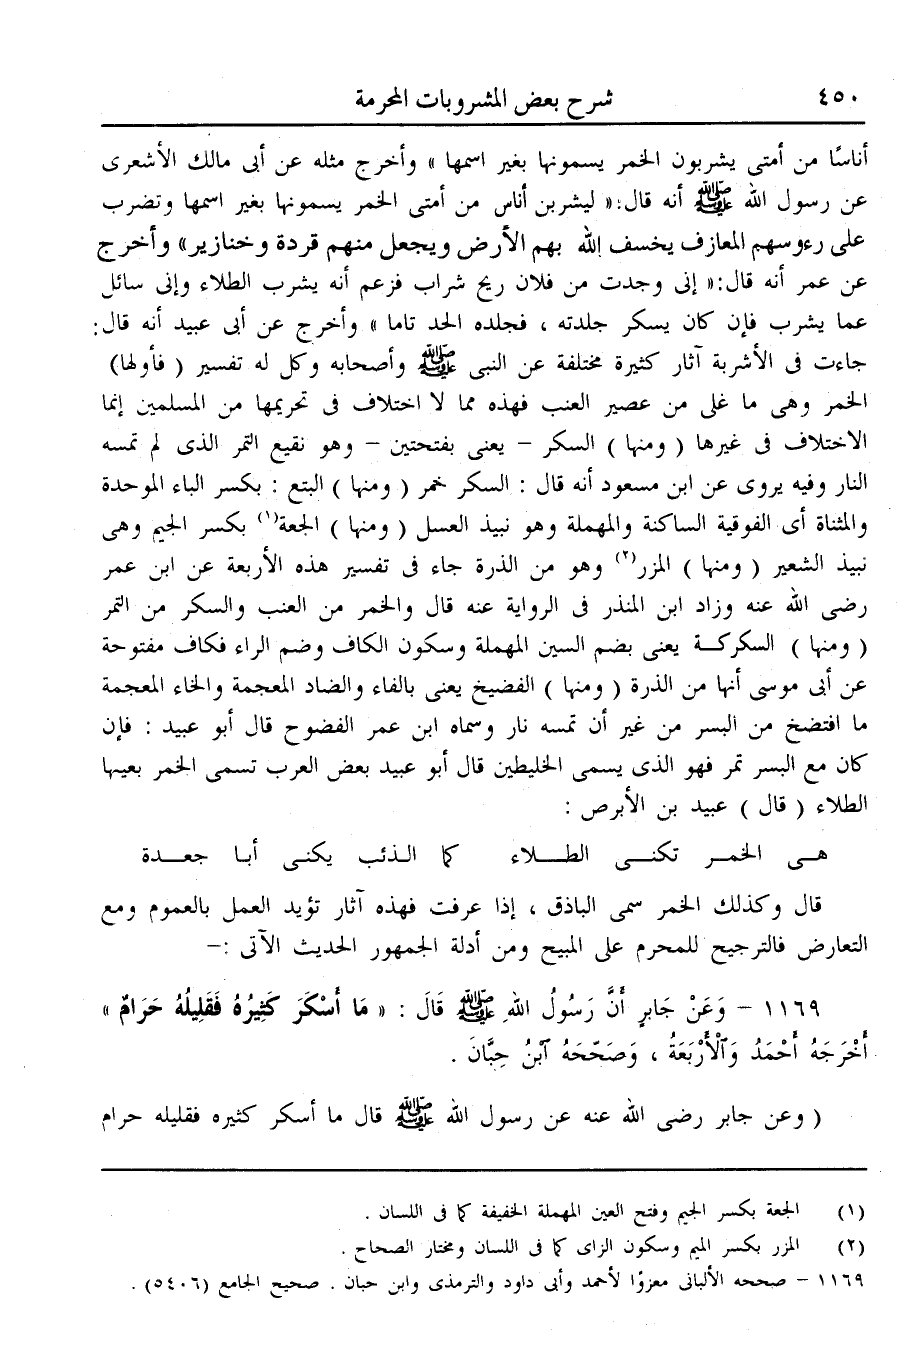 ٤٥٠ شرح بعض المشروبات المحرمة
أناسًا من أمتى يشربون الخمر يسمونها بغير اسمها » وأخرج مثله عن أبى مالك الأشعرى
عن رسول الله ﷺ أنه قال: « ليشربن أناس من أمتى الخمر يسمونها بغير اسمها وتضرب
على رءوسهم المعازف يخسف الله بهم الأرض ويجعل منهم قردة وخنازير» وأخرج
عن عمر أنه قال: « إنى وجدت من فلان ريح شراب فزعم أنه يشرب الطلاء وإنى سائل
عما يشرب فإن كان يسكر جلدته ، فجلده الحد تاما » وأخرج عن أبى عبيد أنه قال:
جاءت فى الأشربة آثار كثيرة مختلفة عن النبى ﷺ وأصحابه وكل له تفسير ( فأولها)
الخمر وهى ما غلى من عصير العنب فهذه مما لا اختلاف فى تحريمها من المسلمين إنما
الاختلاف فى غيرها ( ومنها ) السكر – يعنى بفتحتين – وهو نقيع التمر الذى لم تمسه
النار وفيه يروى عن ابن مسعود أنه قال : السكر خمر ( ومنها ) البتع : بكسر الباء الموحدة
والمثناة أى الفوقية الساكنة والمهملة وهو نبيذ العسل ( ومنها ) الجعة(١) بكسر الجيم وهى
نبيذ الشعير ( ومنها ) المزر(٢) وهو من الذرة جاء فى تفسير هذه الأربعة عن ابن عمر
رضى الله عنه وزاد ابن المنذر فى الرواية عنه قال والخمر من العنب والسكر من التمر
( ومنها ) السكركة يعنى بضم السين المهملة وسكون الكاف وضم الراء فكاف مفتوحة
عن أبى موسى أنها من الذرة ( ومنها ) الفضيخ يعنى بالفاء والضاد المعجمة والخاء المعجمة
ما افتضخ من البسر من غير أن تمسه نار وسماه ابن عمر الفضوح قال أبو عبيد : فإن
كان مع البسر تمر فهو الذى يسمى الخليطين قال أبو عبيد بعض العرب تسمى الخمر بعيها
الطلاء ( قال ) عبيد بن الأبرص :
هى الخمر تكنى الطلاء كما الذئب يكنى أبا جعدة
قال وكذلك الخمر سمى الباذق ، إذا عرفت فهذه آثار تؤيد العمل بالعموم ومع
التعارض فالترجيح للمحرم على المبيح ومن أدلة الجمهور الحديث الآتى :–
١١٦٩ – وَعَنْ جَابِرٍ أَنَّ رَسُولُ اللهِ ﷺ قَالَ : « مَا أَسْكَرَ كَثِيرُهُ فَقَلِيلُهُ حَرَامٌ »
أَخْرَجَهُ أَحْمَدُ وَالْأَرْبَعَةُ ، وَصَحَّحَهُ ابْنُ حِبَّانَ .
( وعن جابر رضى الله عنه عن رسول الله ﷺ قال ما أسكر كثيره فقليله حرام
(١) الجعة بكسر الجيم وفتح العين المهملة الخفيفة كما فى اللسان .
(٢) المزر بكسر الميم وسكون الزاى كما فى اللسان ومختار الصحاح .
١١٦٩ – صححه الألبانى معزوًا لأحمد وأبى داود والترمذى وابن حبان . صحيح الجامع (٥٤٠٦) .